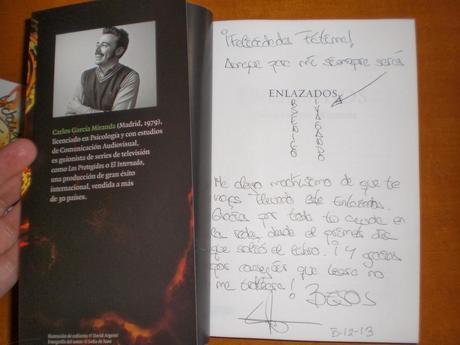 Carlos García Miranda (Madrid, 1979),
licenciado en Psicología y con estudios
de Comunicación Audiovisual,
es guionista de series de televisión
como Los Protegidos o El Internado,
una producción de gran éxito
internacional, vendida a más
de 30 países.
Ilustración de cubierta: © David Argemí
Fotografía del autor: © Sofía de Juan
¡Felicidades Fátima!
Aunque para mí siempre serás
ENLAZADOS
Me alegro muchísimo de que te
haya
Enlazados.
Gracias por toda tu ayuda en
la redes, desde el primer día
que salió el libro. ¡Y gracias
por conseguir que
no
me
! BESOS
3-12-13